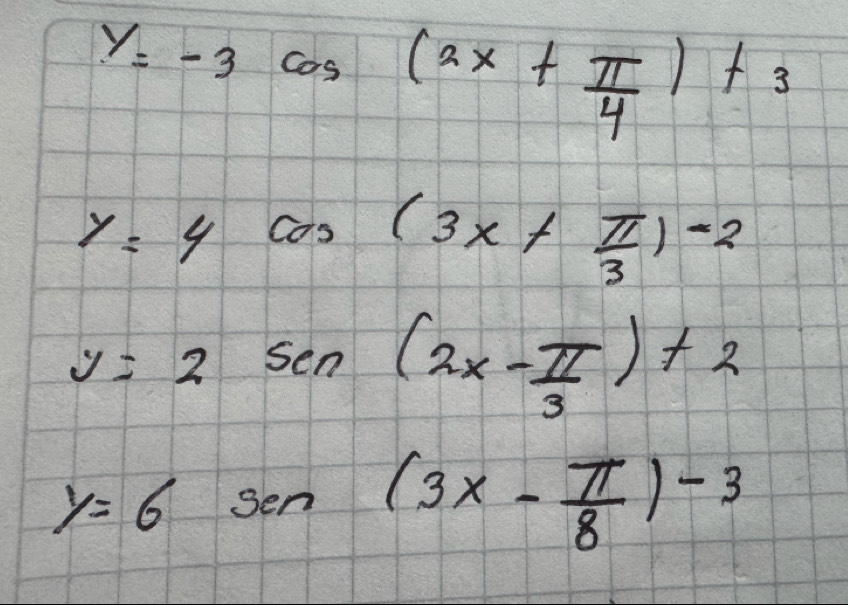 y = -3 cos (2x + π/4) + 3
y = 4 cos (3x + π/3) - 2
y = 2 sen (2x - π/3) + 2
y = 6 sen (3x - π/8) - 3